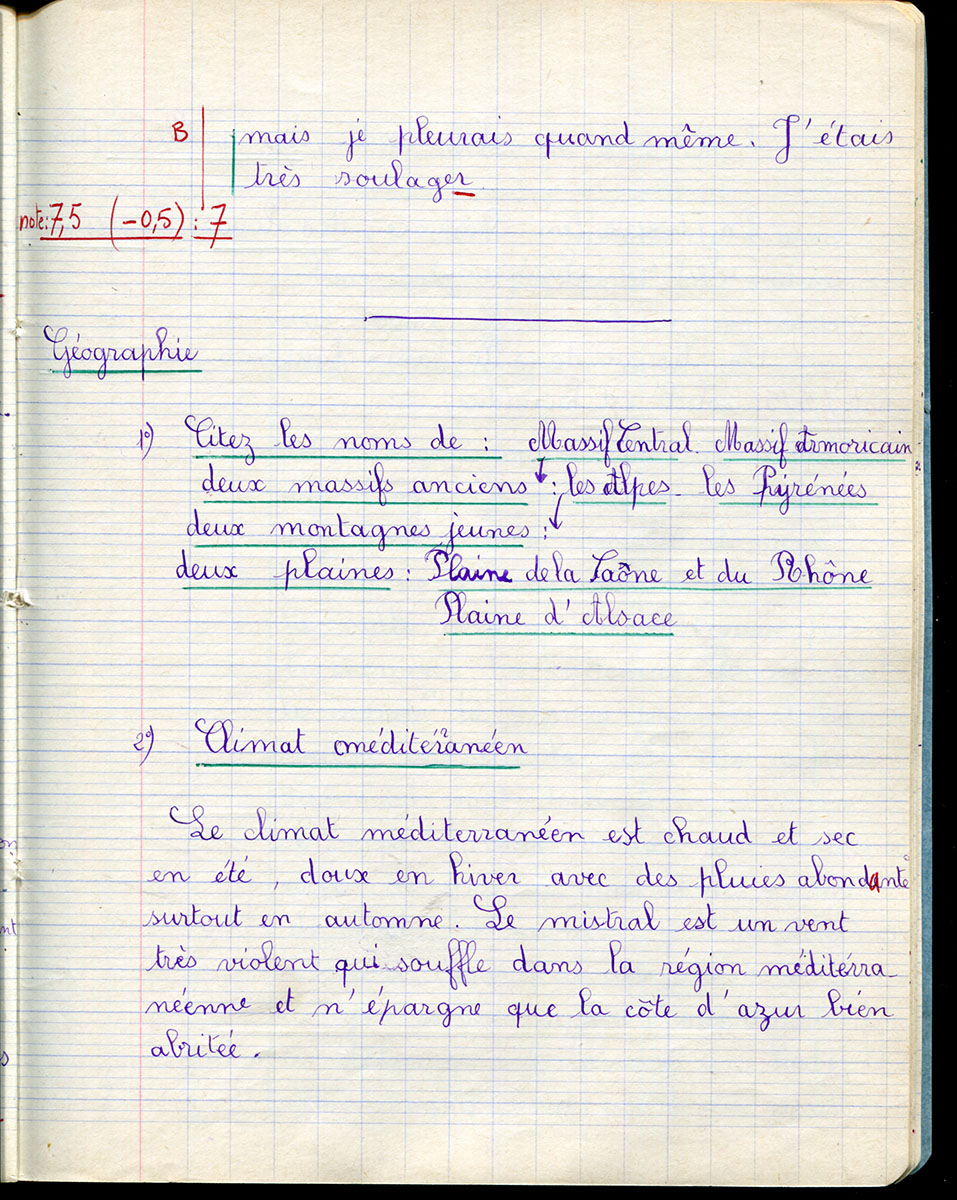 B mais je pleurais quand même. J'étais
très soulager
note: 7,5 (-0,5) : 7
Géographie
1°) Citez les noms de : Massif Central. Massif Armoricain
deux massifs anciens : les Alpes - les Pyrénées
deux montagnes jeunes :
deux plaines : Plaine de la Saône et du Rhône
Plaine d'Alsace
2°) Climat méditéranéen
Le climat méditerranéen est chaud et sec
en été, doux en hiver avec des pluies abondante
surtout en automne. Le mistral est un vent
très violent qui souffle dans la région méditérra-
néenne et n'épargne que la côte d'azur bien
abritée.